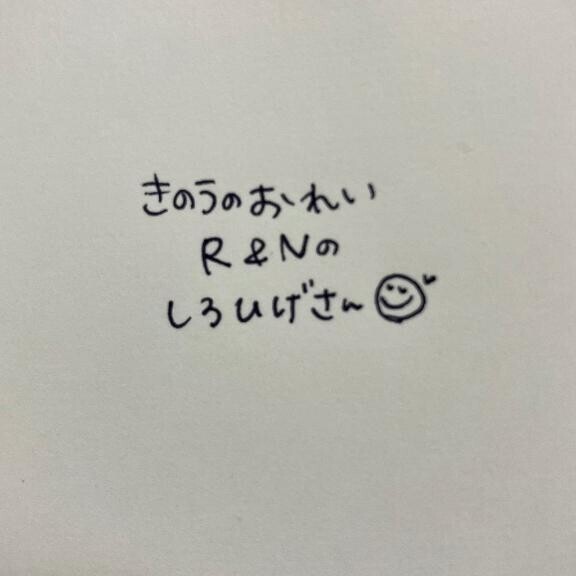 きのうのおれい
R&Nの
しろひげさん